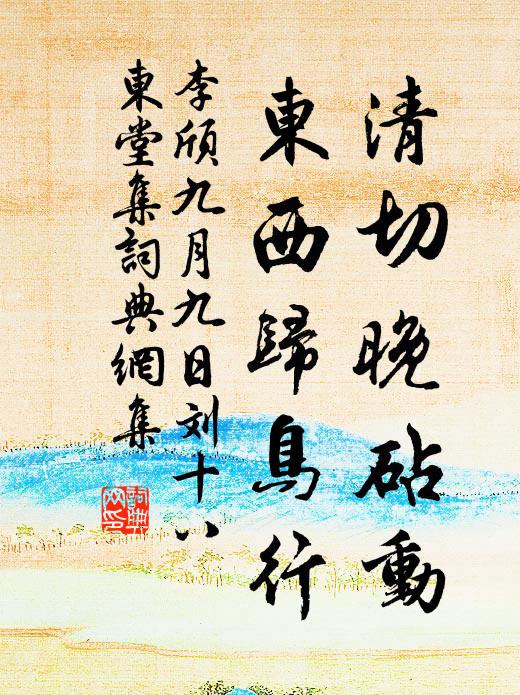 清切晚砧動
東西歸鳥行
李頎九月九日刘十八
東堂集詞典網集
詞典网印